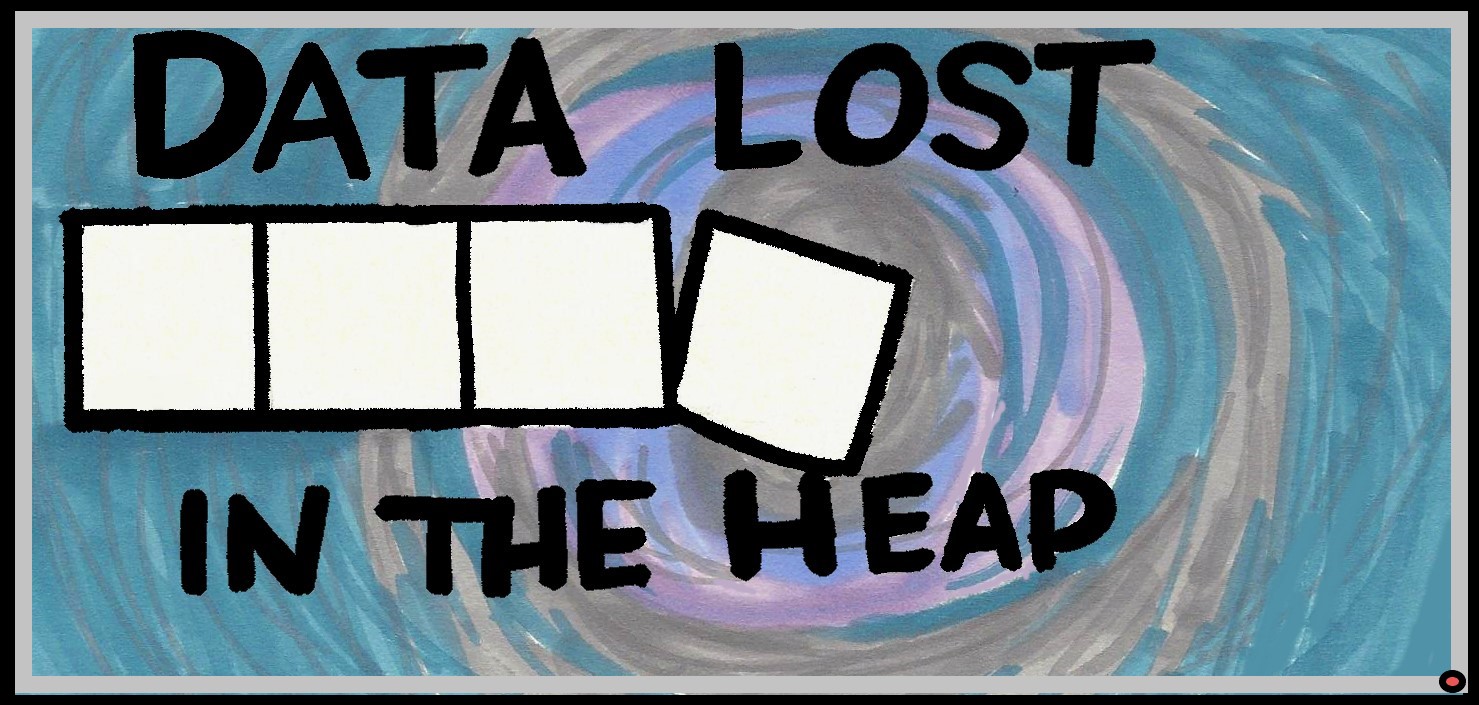 DATA LOST
IN THE HEAP